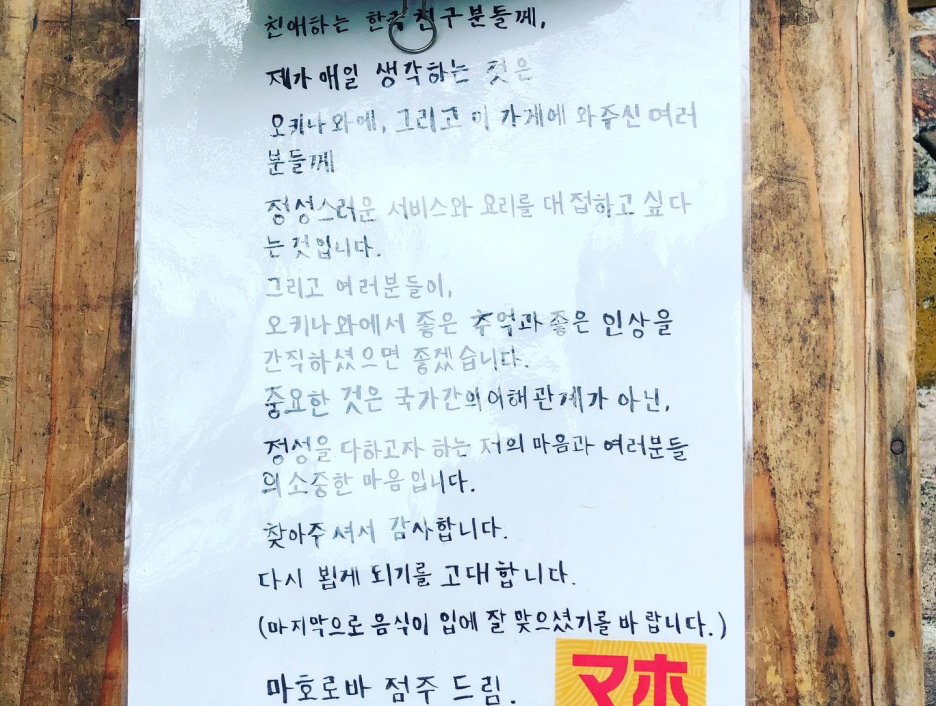 친애하는 한국 친구분들께,
제가 매일 생각하는 것은
오키나와에, 그리고 이 가게에 와주신 여러
분들께
정성스러운 서비스와 요리를 대접하고 싶다
는 것입니다.
그리고 여러분들이,
오키나와에서 좋은 추억과 좋은 인상을
간직하셨으면 좋겠습니다.
중요한 것은 국가간의 이해관계가 아닌,
정성을 다하고자 하는 저의 마음과 여러분들
의 소중한 마음입니다.
찾아주셔서 감사합니다.
다시 뵙게 되기를 고대합니다.
(마지막으로 음식이 입에 잘 맞으셨기를 바랍니다.)
마호로바 점주 드림.
マホ